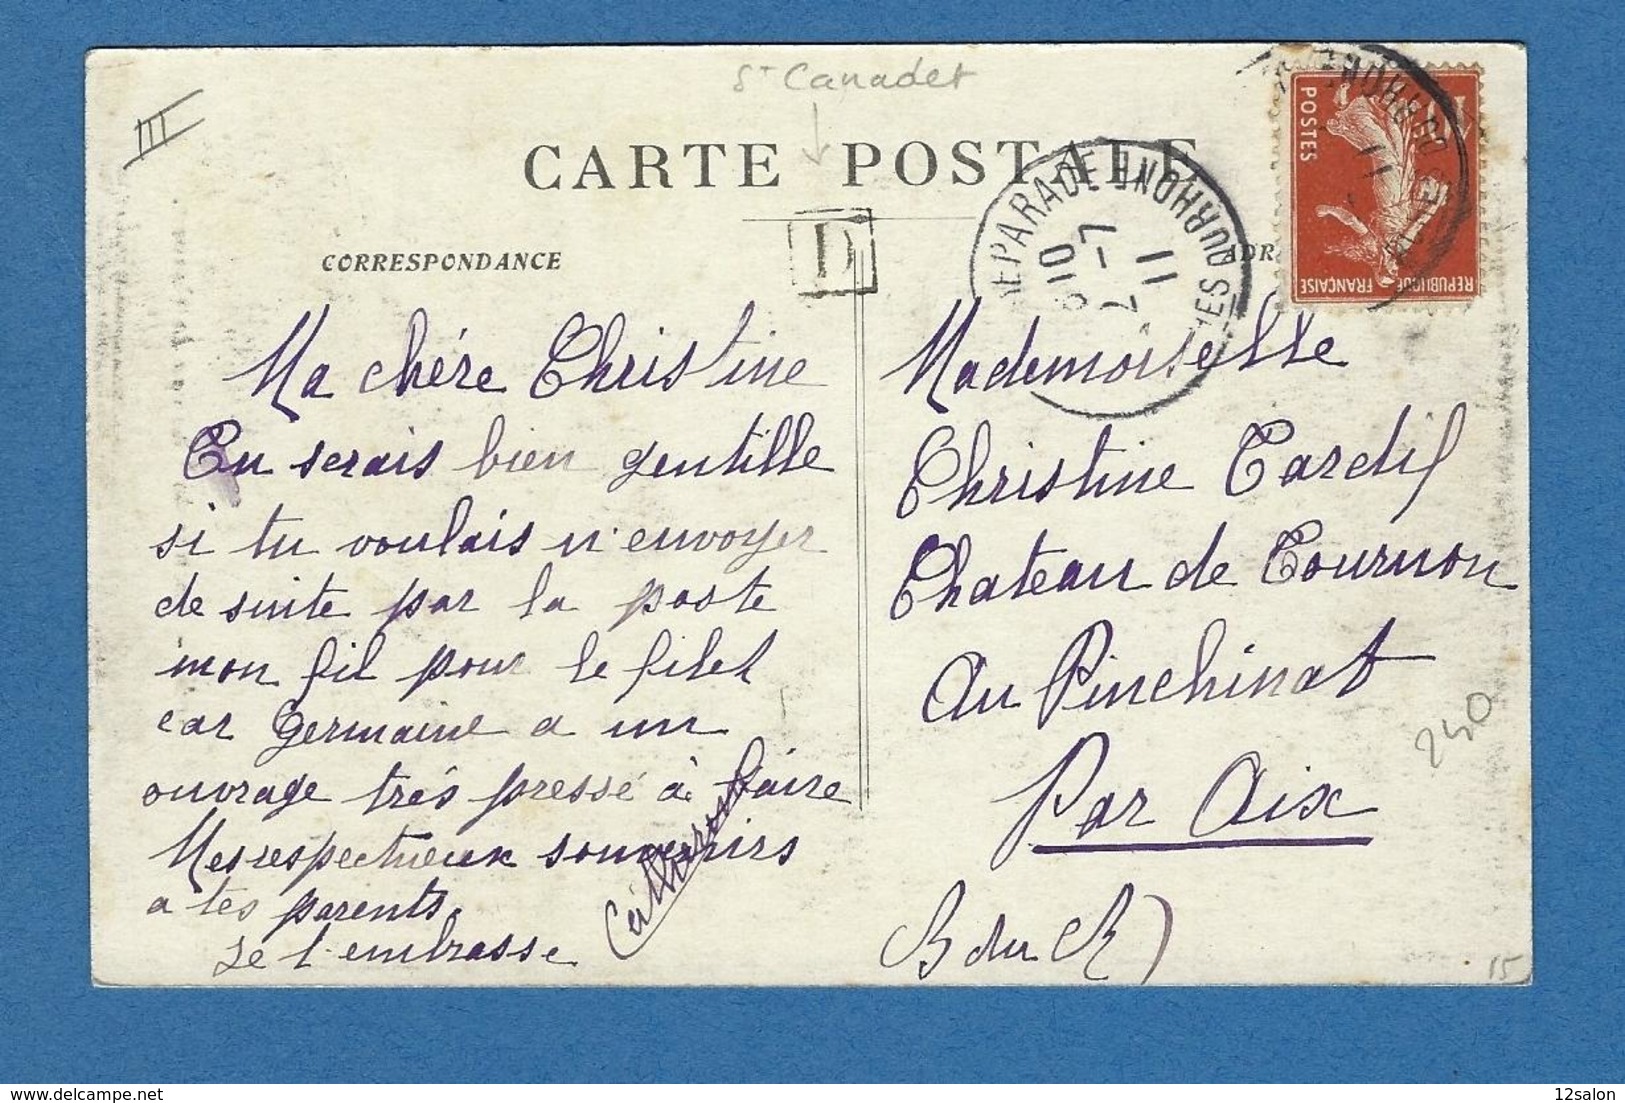 St Canadet
III
CARTE POSTALE
CORRESPONDANCE
D
REPARADE
BOUCHES DU RHONE
6 10
7 - 7
11
POSTES
REPUBLIQUE FRANÇAISE
Ma chére Christine
Tu serais bien gentille
si tu voulais m'envoyer
de suite par la poste
mon fil pour le filet
car Germaine a un
ouvrage trés pressé à faire
Mes respectueux souvenirs
a tes parents.
Je t'embrasse
Mademoiselle
Christine Tardif
Chateau de Tournon
au Pinchinat
Par Aix
B du R)
240
15
12salon